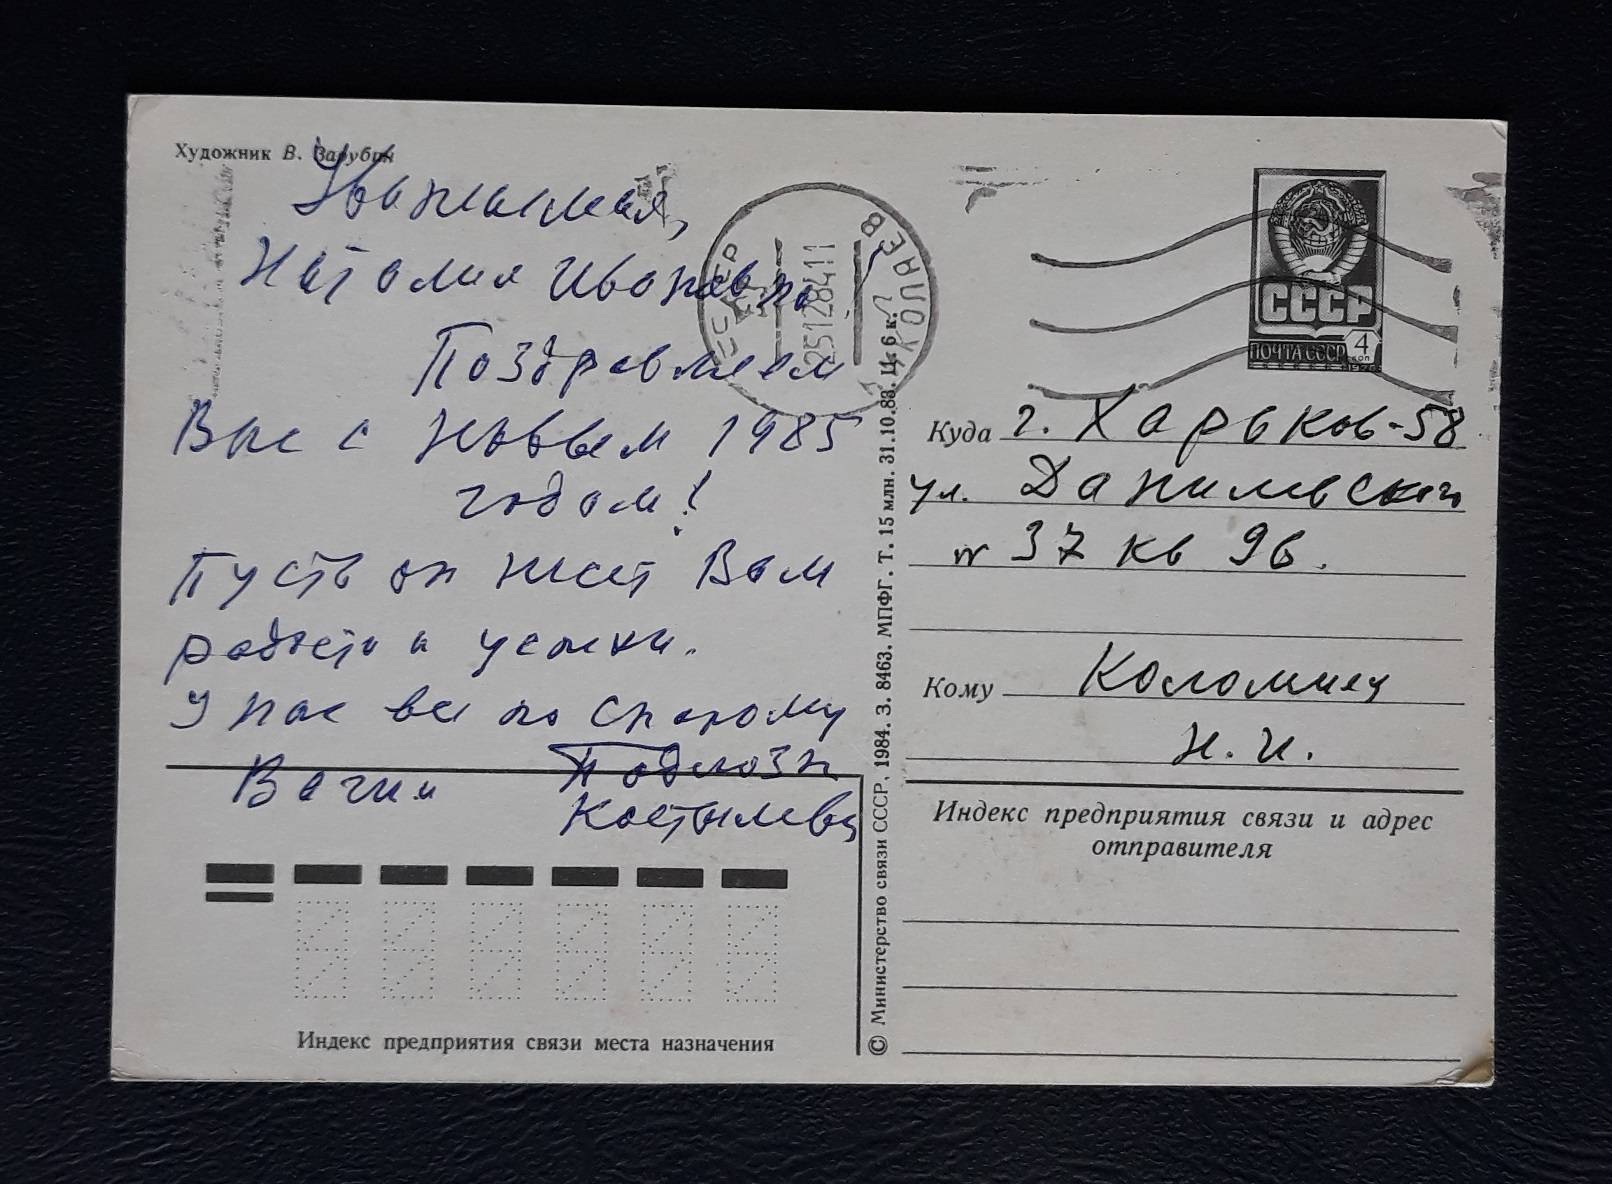 Художник В. Зарубин
Уважаемая,
Наталия Ивановна!
Поздравляем
Вас с Новым 1985
годом!
Пусть он несет Вам
радость и успехи.
У нас все по старому
Вадим
Костылевы
УССР
251284 11
НИКОЛАЕВ
СССР
ПОЧТА СССР 4 коп
Куда г. Харьков-58
ул. Данилевского
37 кв 96.
Кому Коломиец
Н. И.
Индекс предприятия связи и адрес
отправителя
Индекс предприятия связи места назначения
© Министерство связи СССР. 1984. З. 8463. МПФГ. Т. 15 млн. 31.10.83. Ц. 6 к.